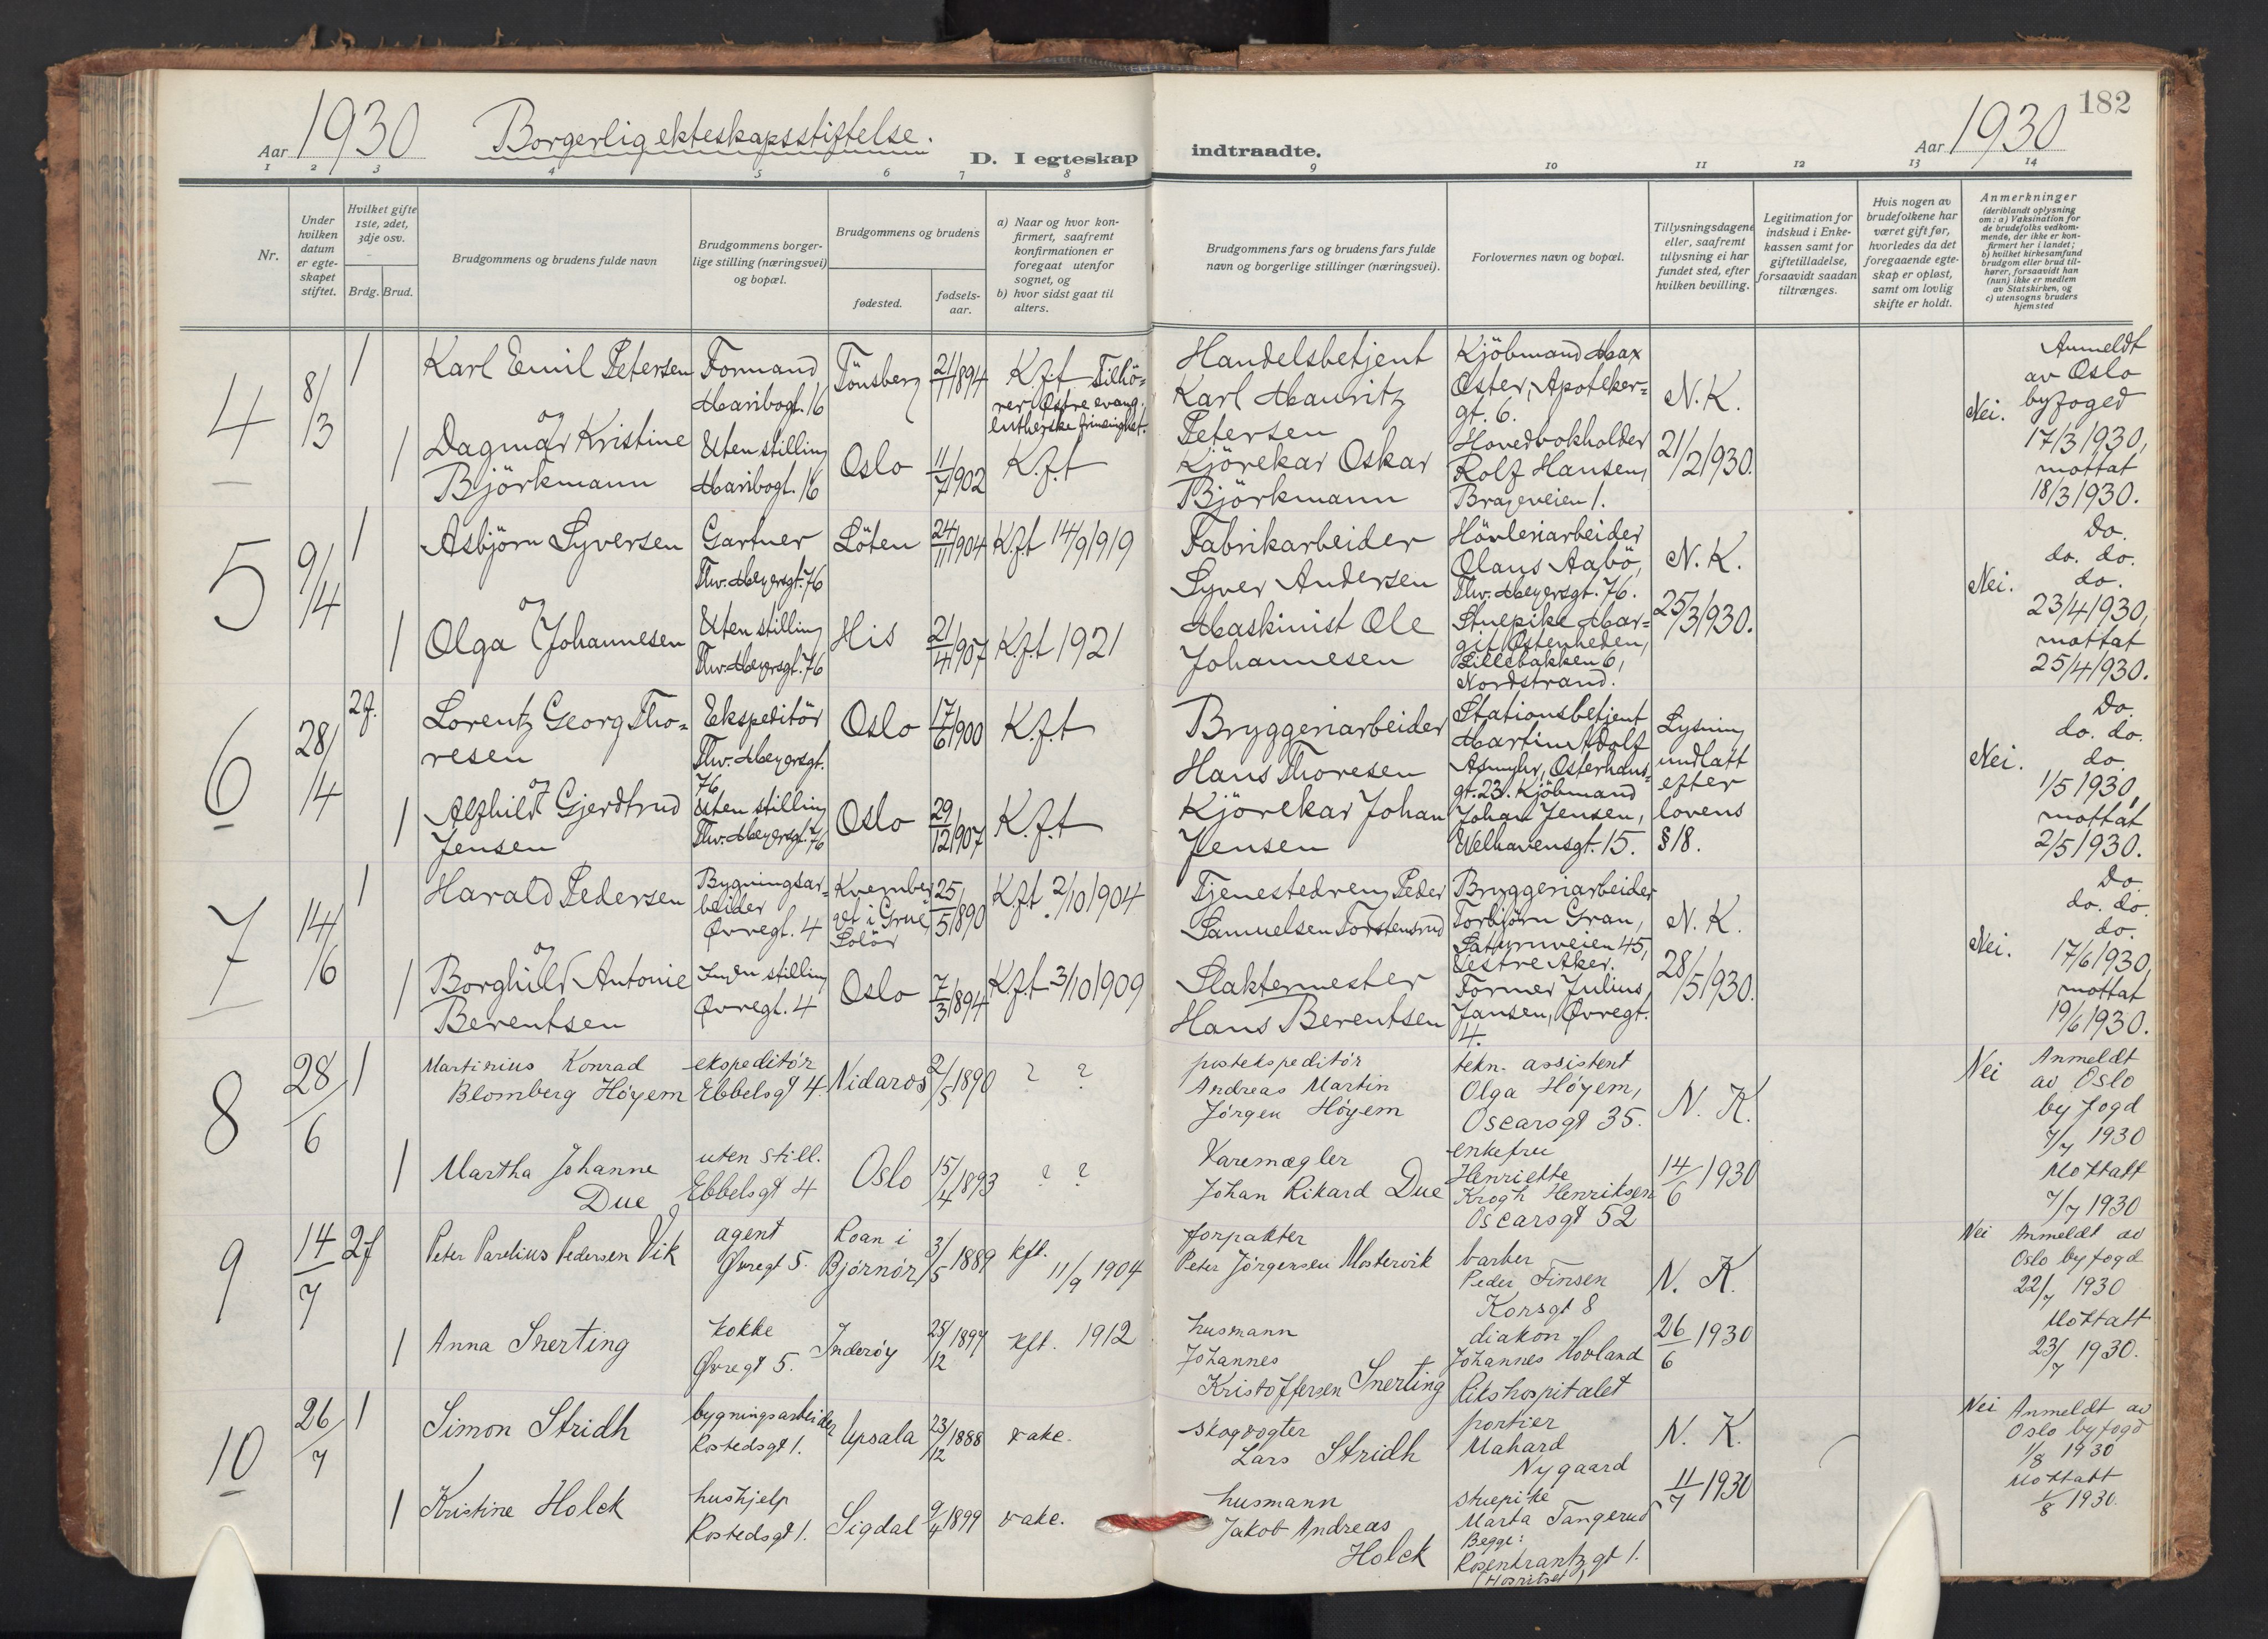 182
Aar 1930 Borgerlig ekteskapsstiftelse. D. I egteskap indtraadte. Aar 1930
1 2 3 4 5 6 7 8 9 10 11 12 13 14
Nr.
Under hvilken datum er egte-skapet stiftet.
Hvilket gifte 1ste, 2det, 3dje osv.
Brdg. Brud.
Brudgommens og brudens fulde navn
Brudgommens borger-
lige stilling (næringsvei)
og bopæl.
Brudgommens og brudens
fødested.
fødsels-
aar.
a) Naar og hvor kon-
firmert, saafremt
konfirmationen er
foregaat utenfor
sognet, og
b) hvor sidst gaat til
alters.
Brudgommens fars og brudens fars fulde
navn og borgerlige stillinger (næringsvei).
Forlovernes navn og bopæl.
Tillysningsdagene
eller, saafremt
tillysning ei har
fundet sted, efter
hvilken bevilling.
Legitimation for
indskud i Enke-
kassen samt for
giftetilladelse,
forsaavidt saadan
tiltrænges.
Hvis nogen av
brudefolkene har
været gift før,
hvorledes da det
foregaaende egte-
skap er opløst,
samt om lovlig
skifte er holdt.
Anmerkninger
(deriblandt oplysning
om: a) Vaksination for
de brudefolks vedkom-
mende, der ikke er kon-
firmert her i landet;
b) hvilket kirkesamfund
brudgom eller brud til-
hører, forsaavidt han
(hun) ikke er medlem
av Statskirken, og
c) utensogns bruders
hjemsted
4
8/3
1
Karl Emil Petersen
Formand
Maribogt. 16
Tönsberg
21/1 1894
K.f.t Tilhö=
rer Østre evang.
lutherske frimenighet.
Handelsbetjent
Karl Mauritz
Petersen
Kjöbmand Max
Oster, Apoteker=
gt. 6.
N.K.
21/2 1930.
Nei.
Anmeldt
av Oslo
byfoged
17/3 1930,
mottat
18/3 1930.
og
1
Dagmar Kristine
Björkmann
Uten stilling
Maribogt. 16
Oslo
11/7 1902
K.f.t
Kjörekar Oskar
Björkmann
Hovedbokholder
Rolf Hansen,
Brageveien 1.
5
9/4
1
Asbjörn Syversen
Gartner
Thv. Meyersgt. 76
Löten
24/11 1904
K.f.t 14/9 1919
Fabrikarbeider
Syver Andersen
Hövleriarbeider
Olaus Aabö,
Thv. Meyersgt. 76.
N.K.
25/3 1930.
Nei.
Do.
do. do.
do.
23/4 1930,
mottat
25/4 1930.
og
1
Olga Johannesen
Uten stilling
Thv. Meyersgt. 76
His
21/4 1907
K.f.t 1921
Maskinist Ole
Johannesen
Stuepike Mar=
git Østenheden,
Lillebakken 6,
Nordstrand.
6
28/4
2f.
Lorentz Georg Tho=
resen
Ekspeditör
Thv. Meyersgt.
76
Oslo
17/6 1900
K.f.t
Bryggeriarbeider
Hans Thoresen
Stationsbetjent
Martin Adolf
Asmyhr, Osterhaus=
gt. 23. Kjöbmand
Johan Jensen,
Welhavensgt. 15.
Lysning
undlatt
efter
lovens
§ 18.
Nei.
Do.
do. do.
do.
1/5 1930,
mottat
2/5 1930.
og
1
Alfhild Gjerdtrud
Jensen
Uten stilling
Thv. Meyersgt. 76
Oslo
29/12 1907
K.f.t
Kjörekar Johan
Jensen
7
14/6
1
Harald Pedersen
Bygningsar=
beider
Øvregt. 4
Kvernber
get i Grue,
Solör
25/5 1890
K.f.t. 2/10 1904
Tjenestedreng Peder
Samuelsen Torstensrud
Bryggeriarbeider
Torbjörn Gran,
Saturnveien 45,
Vestre Aker.
N.K.
28/5 1930.
Nei.
Do.
do. do.
do.
17/6 1930,
mottat
19/6 1930.
og
1
Borghild Antonie
Berentsen
Ingen stilling
Øvregt. 4
Oslo
7/3 1894
K.f.t 3/10 1909
Slaktermester
Hans Berentsen
Former Julius
Jansen, Øvregt.
4.
8
28/6
1
Martinius Konrad
Blomberg Høyem
ekspeditór
Ebbelsgt 4.
Nidaros
2/5 1890
? ?
postekspeditór
Andreas Martin
Jórgen Høyem
tekn. assistent
Olga Høyem,
Oscarsgt 35.
N. K.
14/6 1930
Nei
Anmeldt
av Oslo
byfogd
7/7 1930
Mottatt
7/7 1930
1
Martha Johanne
Due
uten still.
Ebbelsgt 4
Oslo
15/4 1893
? ?
Varemægler
Johan Rikard Due
enkefru
Henriette
Krogh Henriksen
Oscarsgt 52
9
14/7
2f
Peter Parelius Pedersen Vik
agent
Øvregt 5.
Roan i
Bjórnór
3/5 1889
kft.
11/9 1904
forpakter
Peter Jórgensen Mostervik
barber
Peder Finsen
Korsgt 8
N. K.
26/6 1930
Nei
Anmeldt av
Oslo byfogd
22/7 1930
Mottatt
23/7 1930.
1
Anna Snerting
kokke
Øvregt 5.
Inderøy
25/12 1897
kft. 1912
husmann
Johannes
Kristoffersen Snerting
diakon
Johannes Hovland
Rikshospitalet
10
26/7
1
Simon Stridh
bygningsarbeider
Rostedsgt 1.
Upsala
23/12 1888
vake.
skogvogter
Lars Stridh
portier
Mahard
Nygaard
N. K.
11/7 1930
Nei
Anmeldt av
Oslo byfogd
1/8 1930
Mottatt
1/8 1930.
1
Kristine Holck
hushjelp
Rostedsgt 1.
Sigdal
9/4 1899
vake.
husmann
Jakob Andreas
Holck
stuepike
Marta Tangerud
Begge:
Rosenkrantzgt 1.